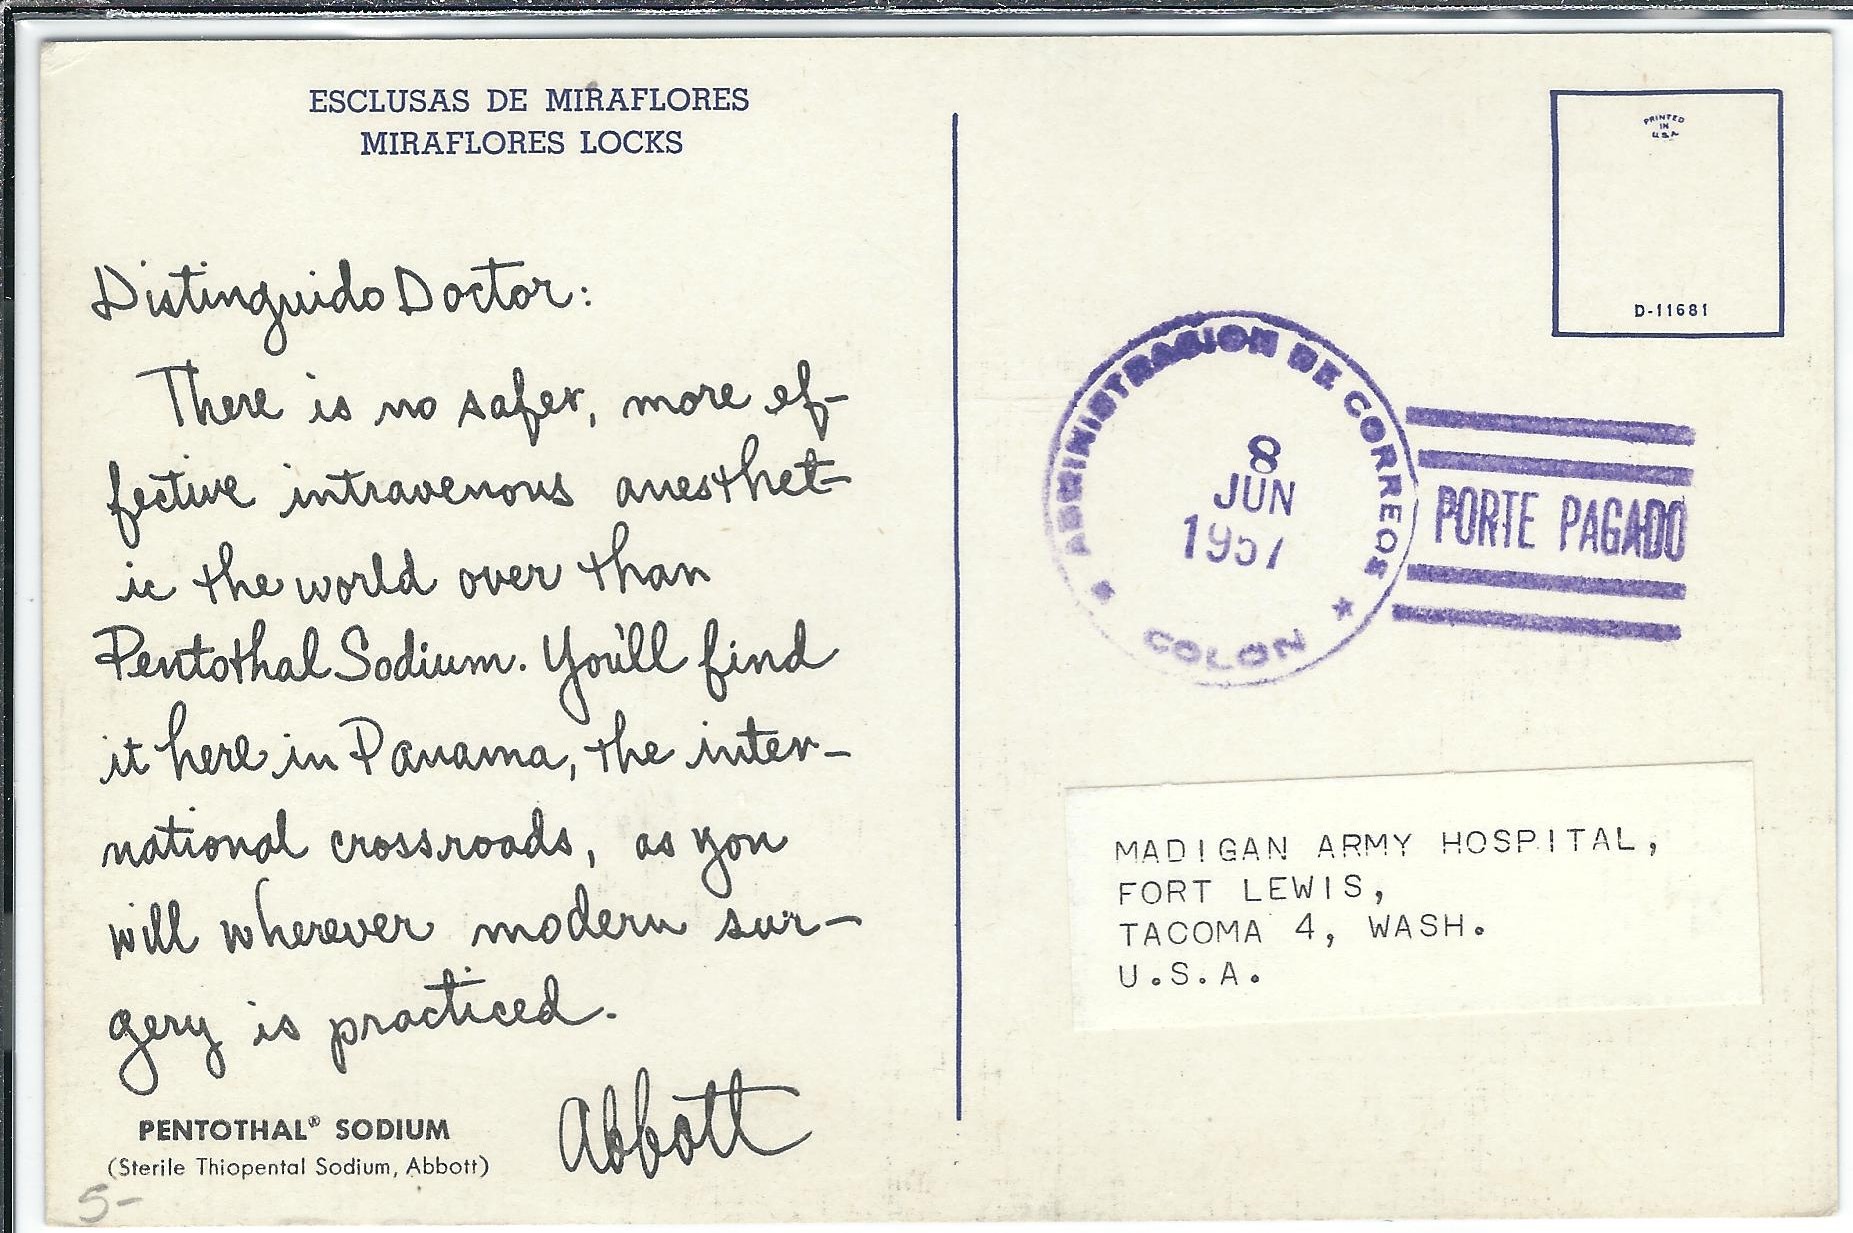 ESCLUSAS DE MIRAFLORES
MIRAFLORES LOCKS
Distinguido Doctor:
There is no safer, more ef-
fective intravenous anesthet-
ic the world over than
Pentothal Sodium. You'll find
it here in Panama, the inter-
national crossroads, as you
will wherever modern sur-
gery is practiced.
Abbott
PENTOTHAL® SODIUM
(Sterile Thiopental Sodium, Abbott)
5-
PRINTED
IN
U.S.A.
D-11681
ADMINISTRACION DE CORREOS
8
JUN
1957
COLON
PORTE PAGADO
MADIGAN ARMY HOSPITAL,
FORT LEWIS,
TACOMA 4, WASH.
U.S.A.